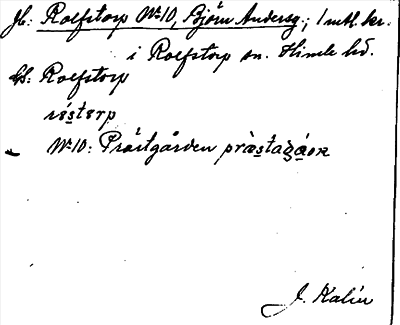 Jb: Rolfstorp No 10, Björn Anderss; 1 mtl. kr.
i Rolfstorp sn. Himle hd.
Us: Rolfstorp
No 10: Prästgården
J. Kalén